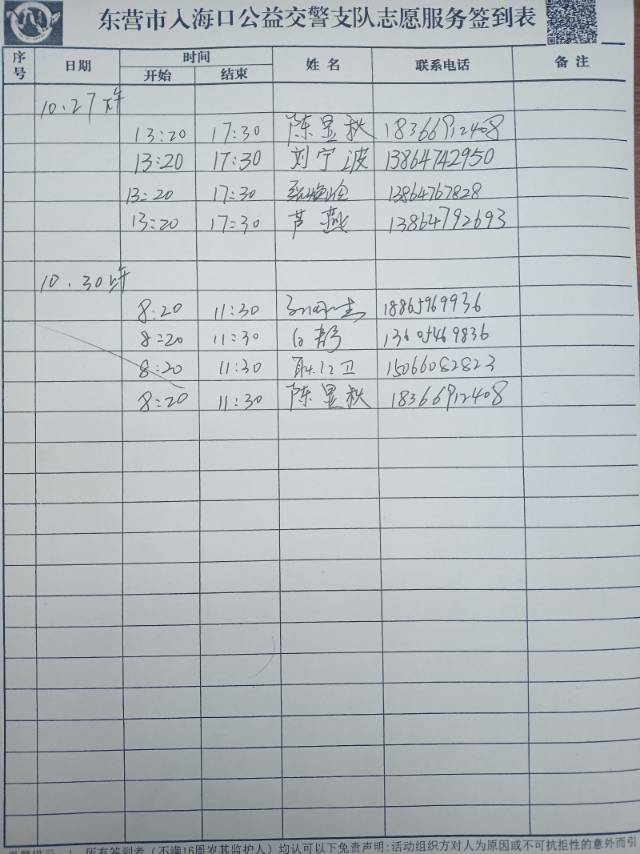 东营市入海口公益交警支队志愿服务签到表
序号 日期 时间 姓名 联系电话 备注
开始 结束
10.27下午
13:20 17:30 陈昱秋 18366912408
13:20 17:30 刘宁波 13864742950
13:20 17:30 13864767828
13:20 17:30 芦燕 13864792693
10.30上午
8:20 11:30 18865969936
8:20 11:30 13605469836
8:20 11:30 耿卫 15066082823
8:20 11:30 陈昱秋 18366912408
1、所有签到者（不满16周岁其监护人）均认可以下免责声明：活动组织方对人为原因或不可抗拒性的意外而引